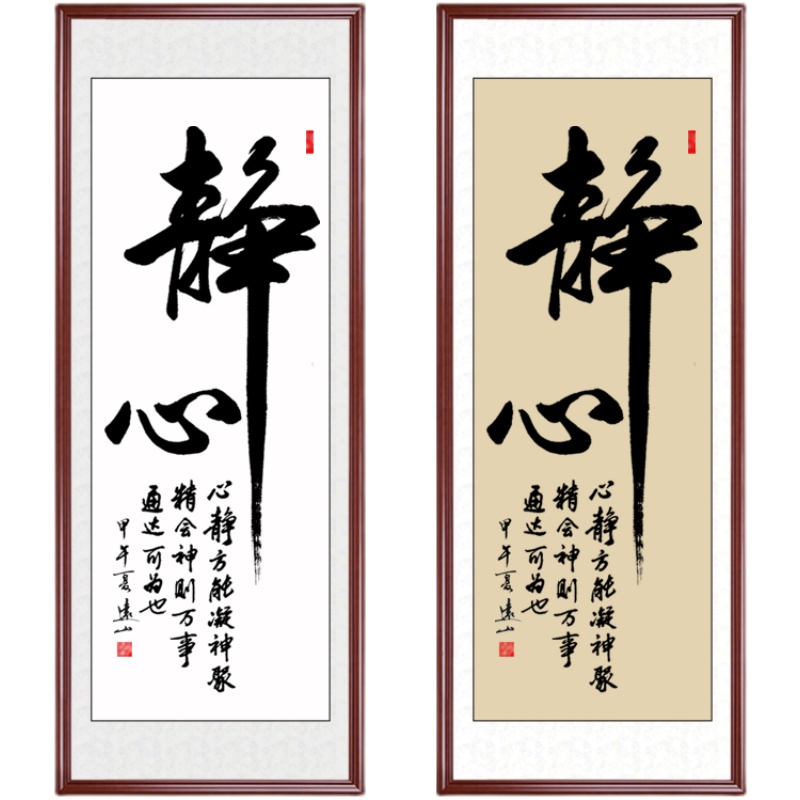 静心
心静方能凝神聚
精会神则万事
通达可为也
甲午夏远山
静心
心静方能凝神聚
精会神则万事
通达可为也
甲午夏远山